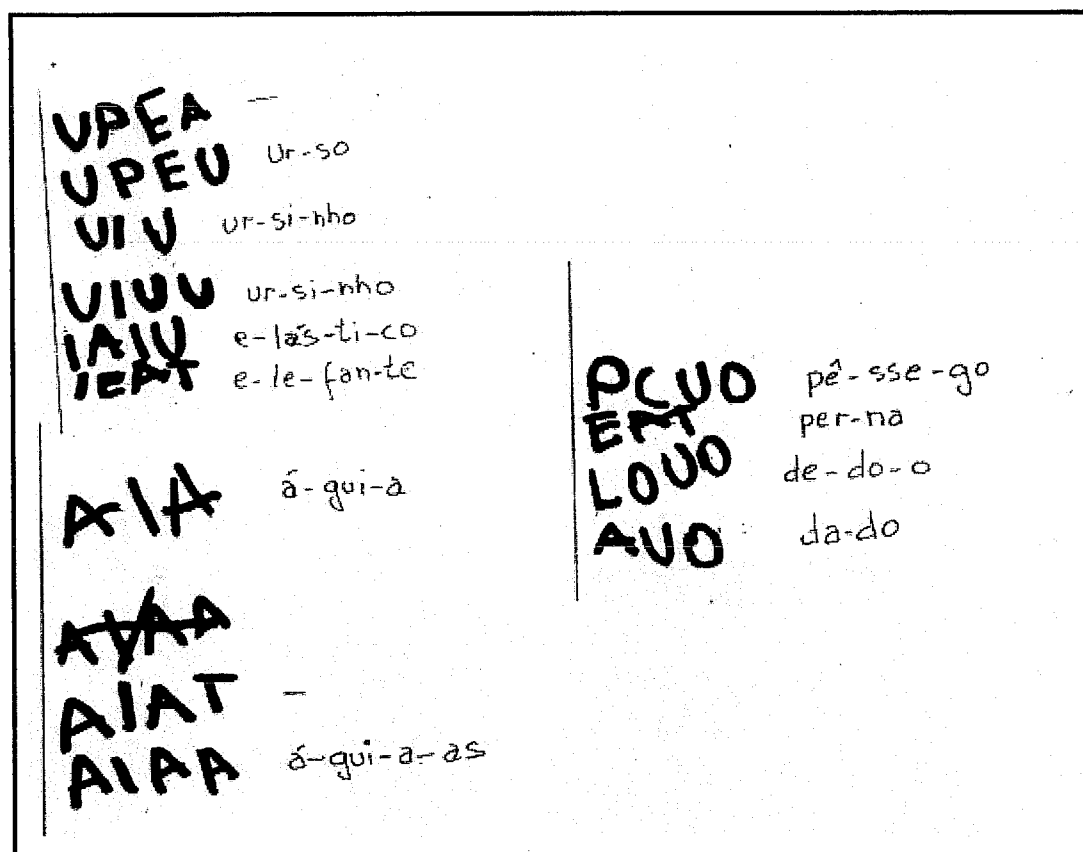 UPEA —
UPEU ur-so
UIU ur-si-nho
UIUU ur-si-nho
IAIU e-lás-ti-co
IEAT e-le-fan-te
AIA á-gui-a
AIAT —
AIAA á-gui-a-as
PCUO pê-sse-go
EAT per-na
LOUO de-do-o
AUO da-do